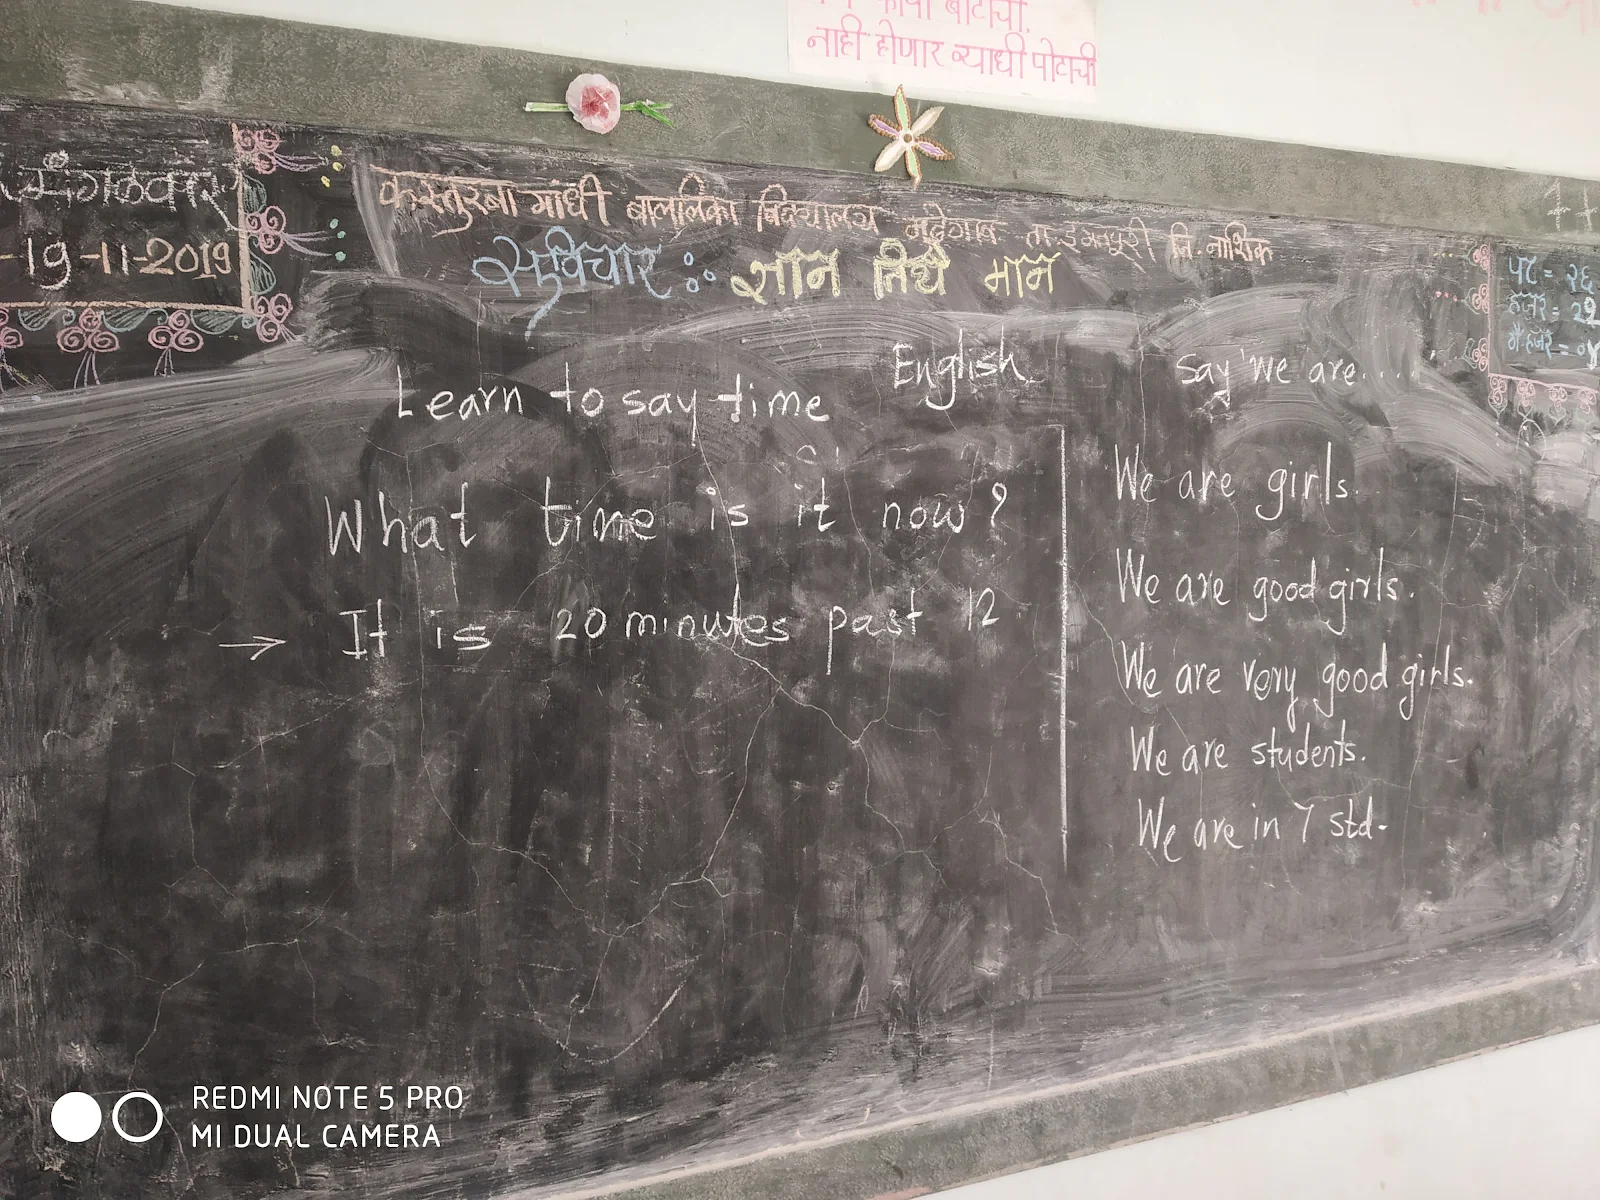 नाही होणार व्याधी पोटाची
मंगळवार
-19-11-2019
कस्तुरबा गांधी बालिका विद्यालय ता. इगतपुरी जि. नाशिक
सुविचार : ज्ञान तिथे मान
पट = २६
हजर = 22
गै.हजर = ०४
English
Learn to say time
What time is it now?
→ It is 20 minutes past 12
Say 'we are.....
We are girls.
We are good girls.
We are very good girls.
We are students.
We are in 7 std.
REDMI NOTE 5 PRO
MI DUAL CAMERA